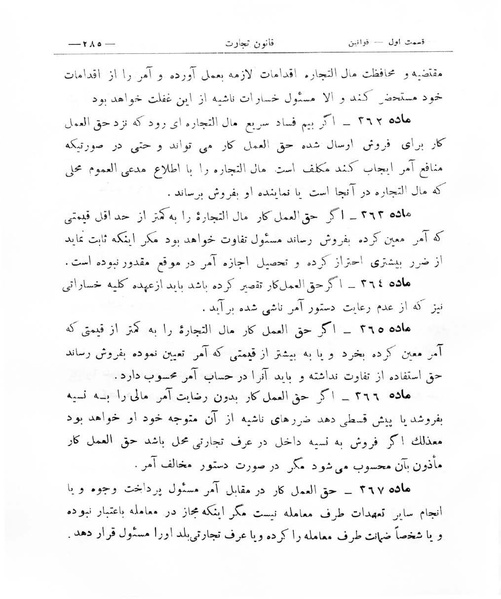 قسمت اول — قوانین
قانون تجارت
—۲۸۵—
مقتضیه و محافظت مال التجاره اقدامات لازمه بعمل آورده و آمر را از اقدامات
خود مستحضر کند و الا مسئول خسارات ناشیه از این غفلت خواهد بود
ماده ۳۶۲ – اگر بیم فساد سریع مال التجاره ای رود که نزد حق العمل
کار برای فروش ارسال شده حق العمل کار می تواند و حتی در صورتیکه
منافع آمر ایجاب کند مکلف است مال التجاره را با اطلاع مدعی العموم محلی
که مال التجاره در آنجا است یا نماینده او بفروش برساند .
ماده ۳۶۳ – اگر حق العمل کار مال التجارۀ را به کمتر از حد اقل قیمتی
که آمر معین کرده بفروش رساند مسئول تفاوت خواهد بود مگر اینکه ثابت نماید
از ضرر بیشتری احتراز کرده و تحصیل اجازه آمر در موقع مقدور نبوده است .
ماده ۳۶٤ – اگر حق العمل کار تقصیر کرده باشد باید از عهده کلیه خساراتی
نیز که از عدم رعایت دستور آمر ناشی شده بر آید .
ماده ۳۶۵ – اگر حق العمل کار مال التجارۀ را به کمتر از قیمتی که
آمر معین کرده بخرد و یا به بیشتر از قیمتی که آمر تعیین نموده بفروش رساند
حق استفاده از تفاوت نداشته و باید آنرا در حساب آمر محسوب دارد .
ماده ۳۶۶ – اگر حق العمل کار بدون رضایت آمر مالی را به نسیه
بفروشد یا پیش قسطی دهد ضررهای ناشیه از آن متوجه خود او خواهد بود
معذلک اگر فروش به نسیه داخل در عرف تجارتی محل باشد حق العمل کار
مأذون بآن محسوب می شود مگر در صورت دستور مخالف آمر .
ماده ۳۶۷ – حق العمل کار در مقابل آمر مسئول پرداخت وجوه و یا
انجام سایر تعهدات طرف معامله نیست مگر اینکه مجاز در معامله باعتبار نبوده
و یا شخصاً ضمانت طرف معامله را کرده و یا عرف تجارتی بلد او را مسئول قرار دهد .